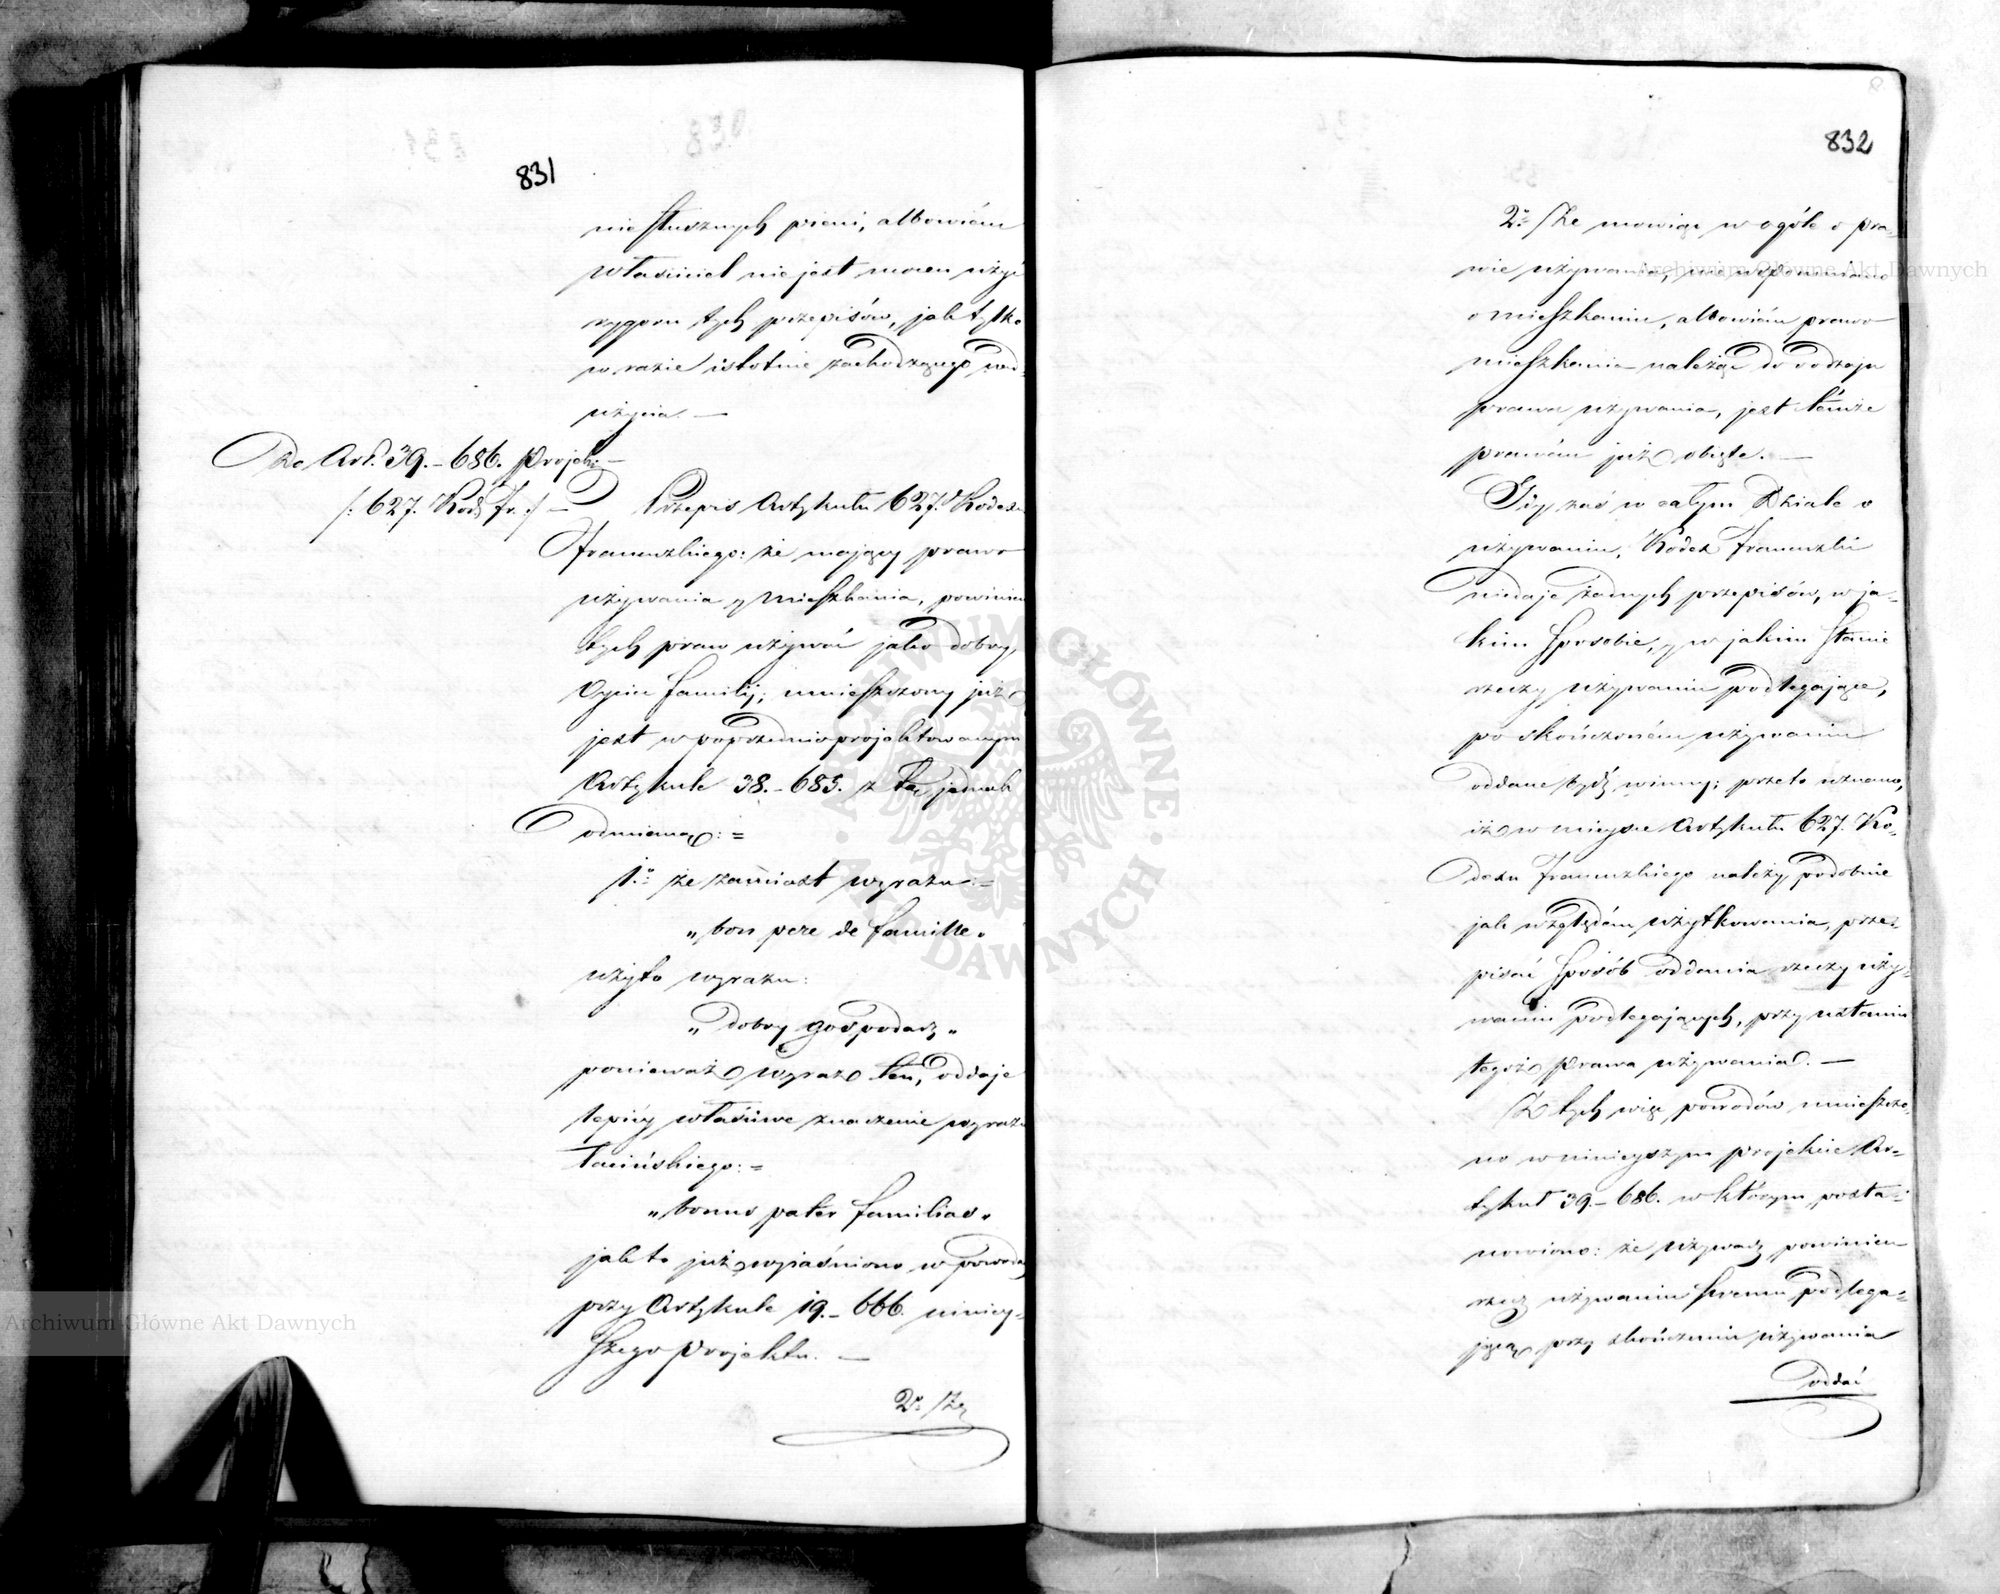 831
niesłusznych pieni, albowiém
właściciel nie jest mocen użyć
rygoru tych przepisów, jak tylko
w razie istotnie zachodzącego nad-
użycia. —
Do Art. 39. - 686. Projek: —
/: 627. Kod. Fr. :/ —
Przepis Artykułu 627. Kodexu
Francuzkiego: że mający prawo
używania y mieszkania, powinien
tych praw używać jako dobry,
Oyciec familij; umieszczony już
jest w poprzednio projektowanym
Artykule 38. - 685. z tą jednak
odmianą: =
1.° że zamiast wyrazu: =
„bon pere de famille"
użyto wyrazu:
„dobry gospodarz"
ponieważ wyraz ten, oddaje
lepiéy właściwe znaczenie wyrazu
łacińskiego: =
„bonus pater familias"
jak to już wyjaśniono w powodach
przy Artykule 19. - 666. niniey-
szego Projektu. —
2° Że
832
2° Że mowiąc w ogóle o pra-
wie używania, nie wspomniano
o mieszkaniu, albowiém prawo
mieszkania należąc do rodzaju
prawa używania, jest témże
prawém już objęte. —
Gdy zaś w całym Dziale o
używaniu, Kodex Francuzki
niedaje żadnych przepisów, w ja-
kim sposobie, y w jakim stanie
rzeczy używaniu podlegające,
po skończoném używaniu
oddane bydź winny; przeto uznano,
iż w mieysce Artykułu 627. Ko-
dexu Francuzkiego należy, podobnie
jak względém użytkowania, prze-
pisać sposób oddania rzeczy uży-
waniu podlegających, przy ustaniu
tegoż Prawa używania. —
Z tych więc powodów umieszczo-
no w ninieyszym projekcie Ar-
tykuł 39. - 686. w którym posta-
nowiono: że używacz powinien
rzecz używaniu swemu podlega-
jącą, przy skończeniu używania
oddać
Archiwum Główne Akt Dawnych
Archiwum Główne Akt Dawnych
ARCHIWUM GŁÓWNE · AKT DAWNYCH ·